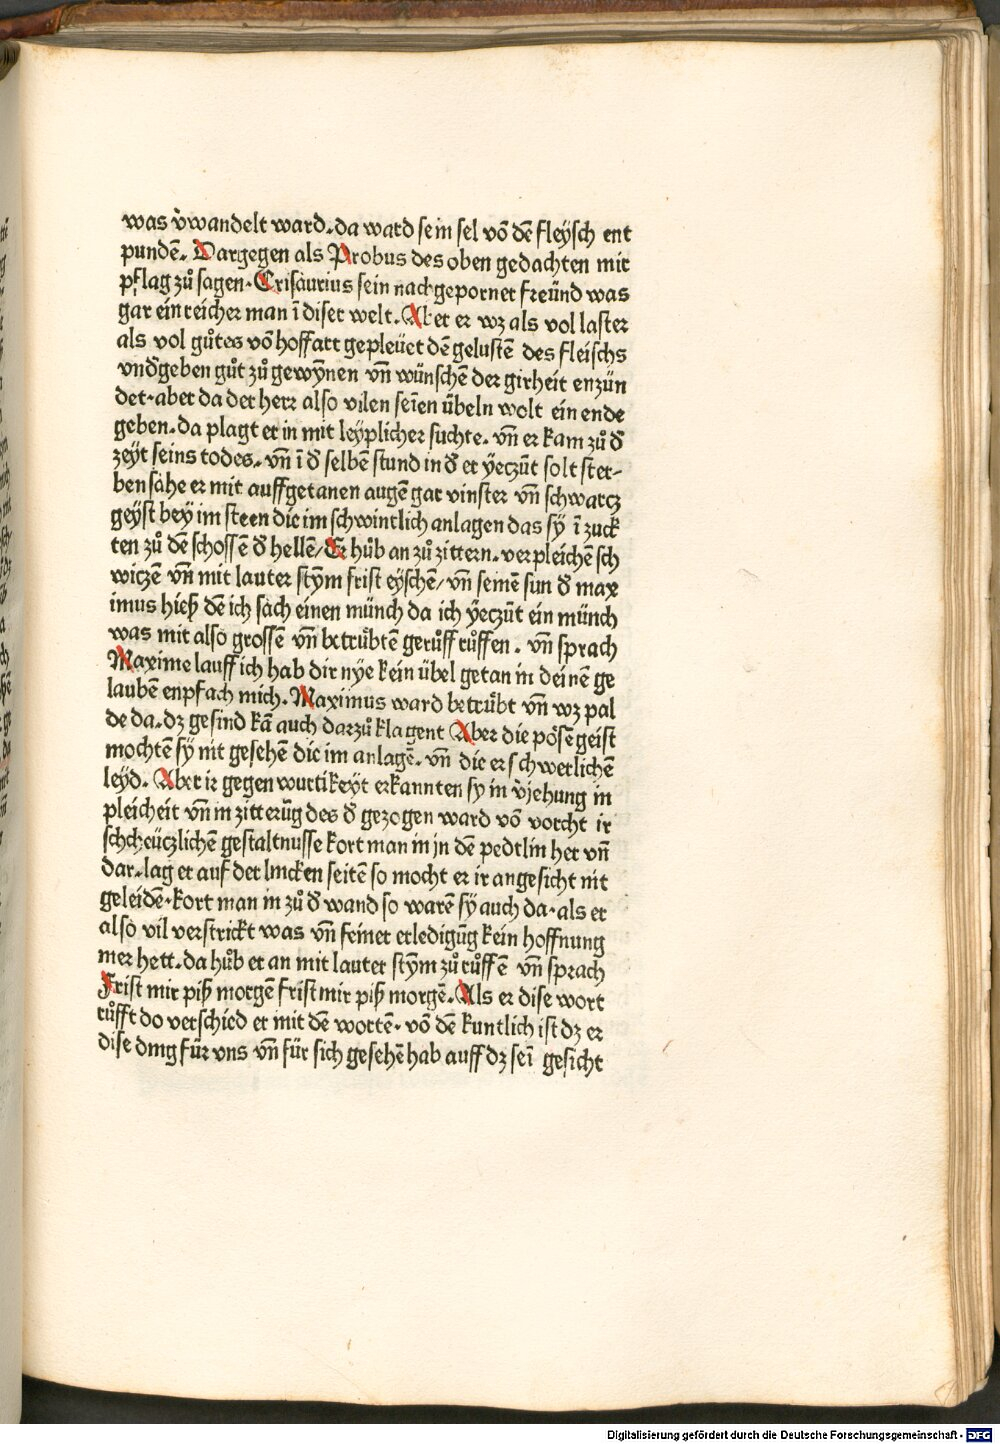 was v̉wandelt ward. da ward sein sel vō dē fleÿsch ent
pundē. Dargegen als Probus des oben gedachten mit
pflag zů sagen. Crisaurius sein nachgeporner freünd was
gar ein reicher man ī diser welt. Aber er wz als vol laster
als vol gůtes vō hoffart gepleüet dē gelustē des fleischs
vnd̓geben gůt zů gewÿnen vn̄ wünschē der girheit enzün
det. aber da der herr also vilen seīen übeln wolt ein ende
geben. da plagt er in mit leÿplicher suchte. vn̄ er kam zů d̓
zeÿt seins todes. vn̄ ī d̓ selbē stund in d̓ er ÿeczūt solt ster-
ben sahe er mit auffgetanen augē gar vinster vn̄ schwarcz
geÿst beÿ im steen die im schwintlich anlagen das sÿ ī zuck
ten zů dē schossē d̓ hellē/ Er hůb an zů zittern. verpleichē sch
wiczē vn̄ mit lauter stÿm frist eÿschē/ vn̄ seinē sun d̓ max
imus hieß dē ich sach einen münch da ich ÿeczūt ein münch
was mit also grossē vn̄ betrůbtē gerůff růffen. vn̄ sprach
Maxime lauff ich hab dir nÿe kein übel getan in deinē ge
laubē enpfach mich. Maximus ward betrůbt vn̄ wz pal
de da. dz gesind kā auch darzů klagent Aber die pösē geist
mochtē sÿ nit gesehē die im anlagē. vn̄ die er schwerlichē
leÿd. Aber ir gegenwurtikeÿt erkannten sy in v̉jehung in
pleicheit vn̄ in zitterūg des d̓ gezogen ward vō vorcht ir
schcheüczlichē gestaltnusse kort man in jn dē pedtlin her vn̄
dar. lag er auf der lincken seitē so mocht er ir angesicht nit
geleidē. kort man in zů d̓ wand so warē sÿ auch da. als er
also vil verstrickt was vn̄ seiner erledigūg kein hoffnung
mer hett. da hůb er an mit lauter stÿm zů růffē vn̄ sprach
Frist mir piß morgē frist mir piß morgē. Als er dise wort
růfft do verschied er mit dē wortē. vō dē kuntlich ist dz er
dise ding für vns vn̄ für sich gesehē hab auff dz seī gesicht
Digitalisierung gefördert durch die Deutsche Forschungsgemeinschaft - DFG